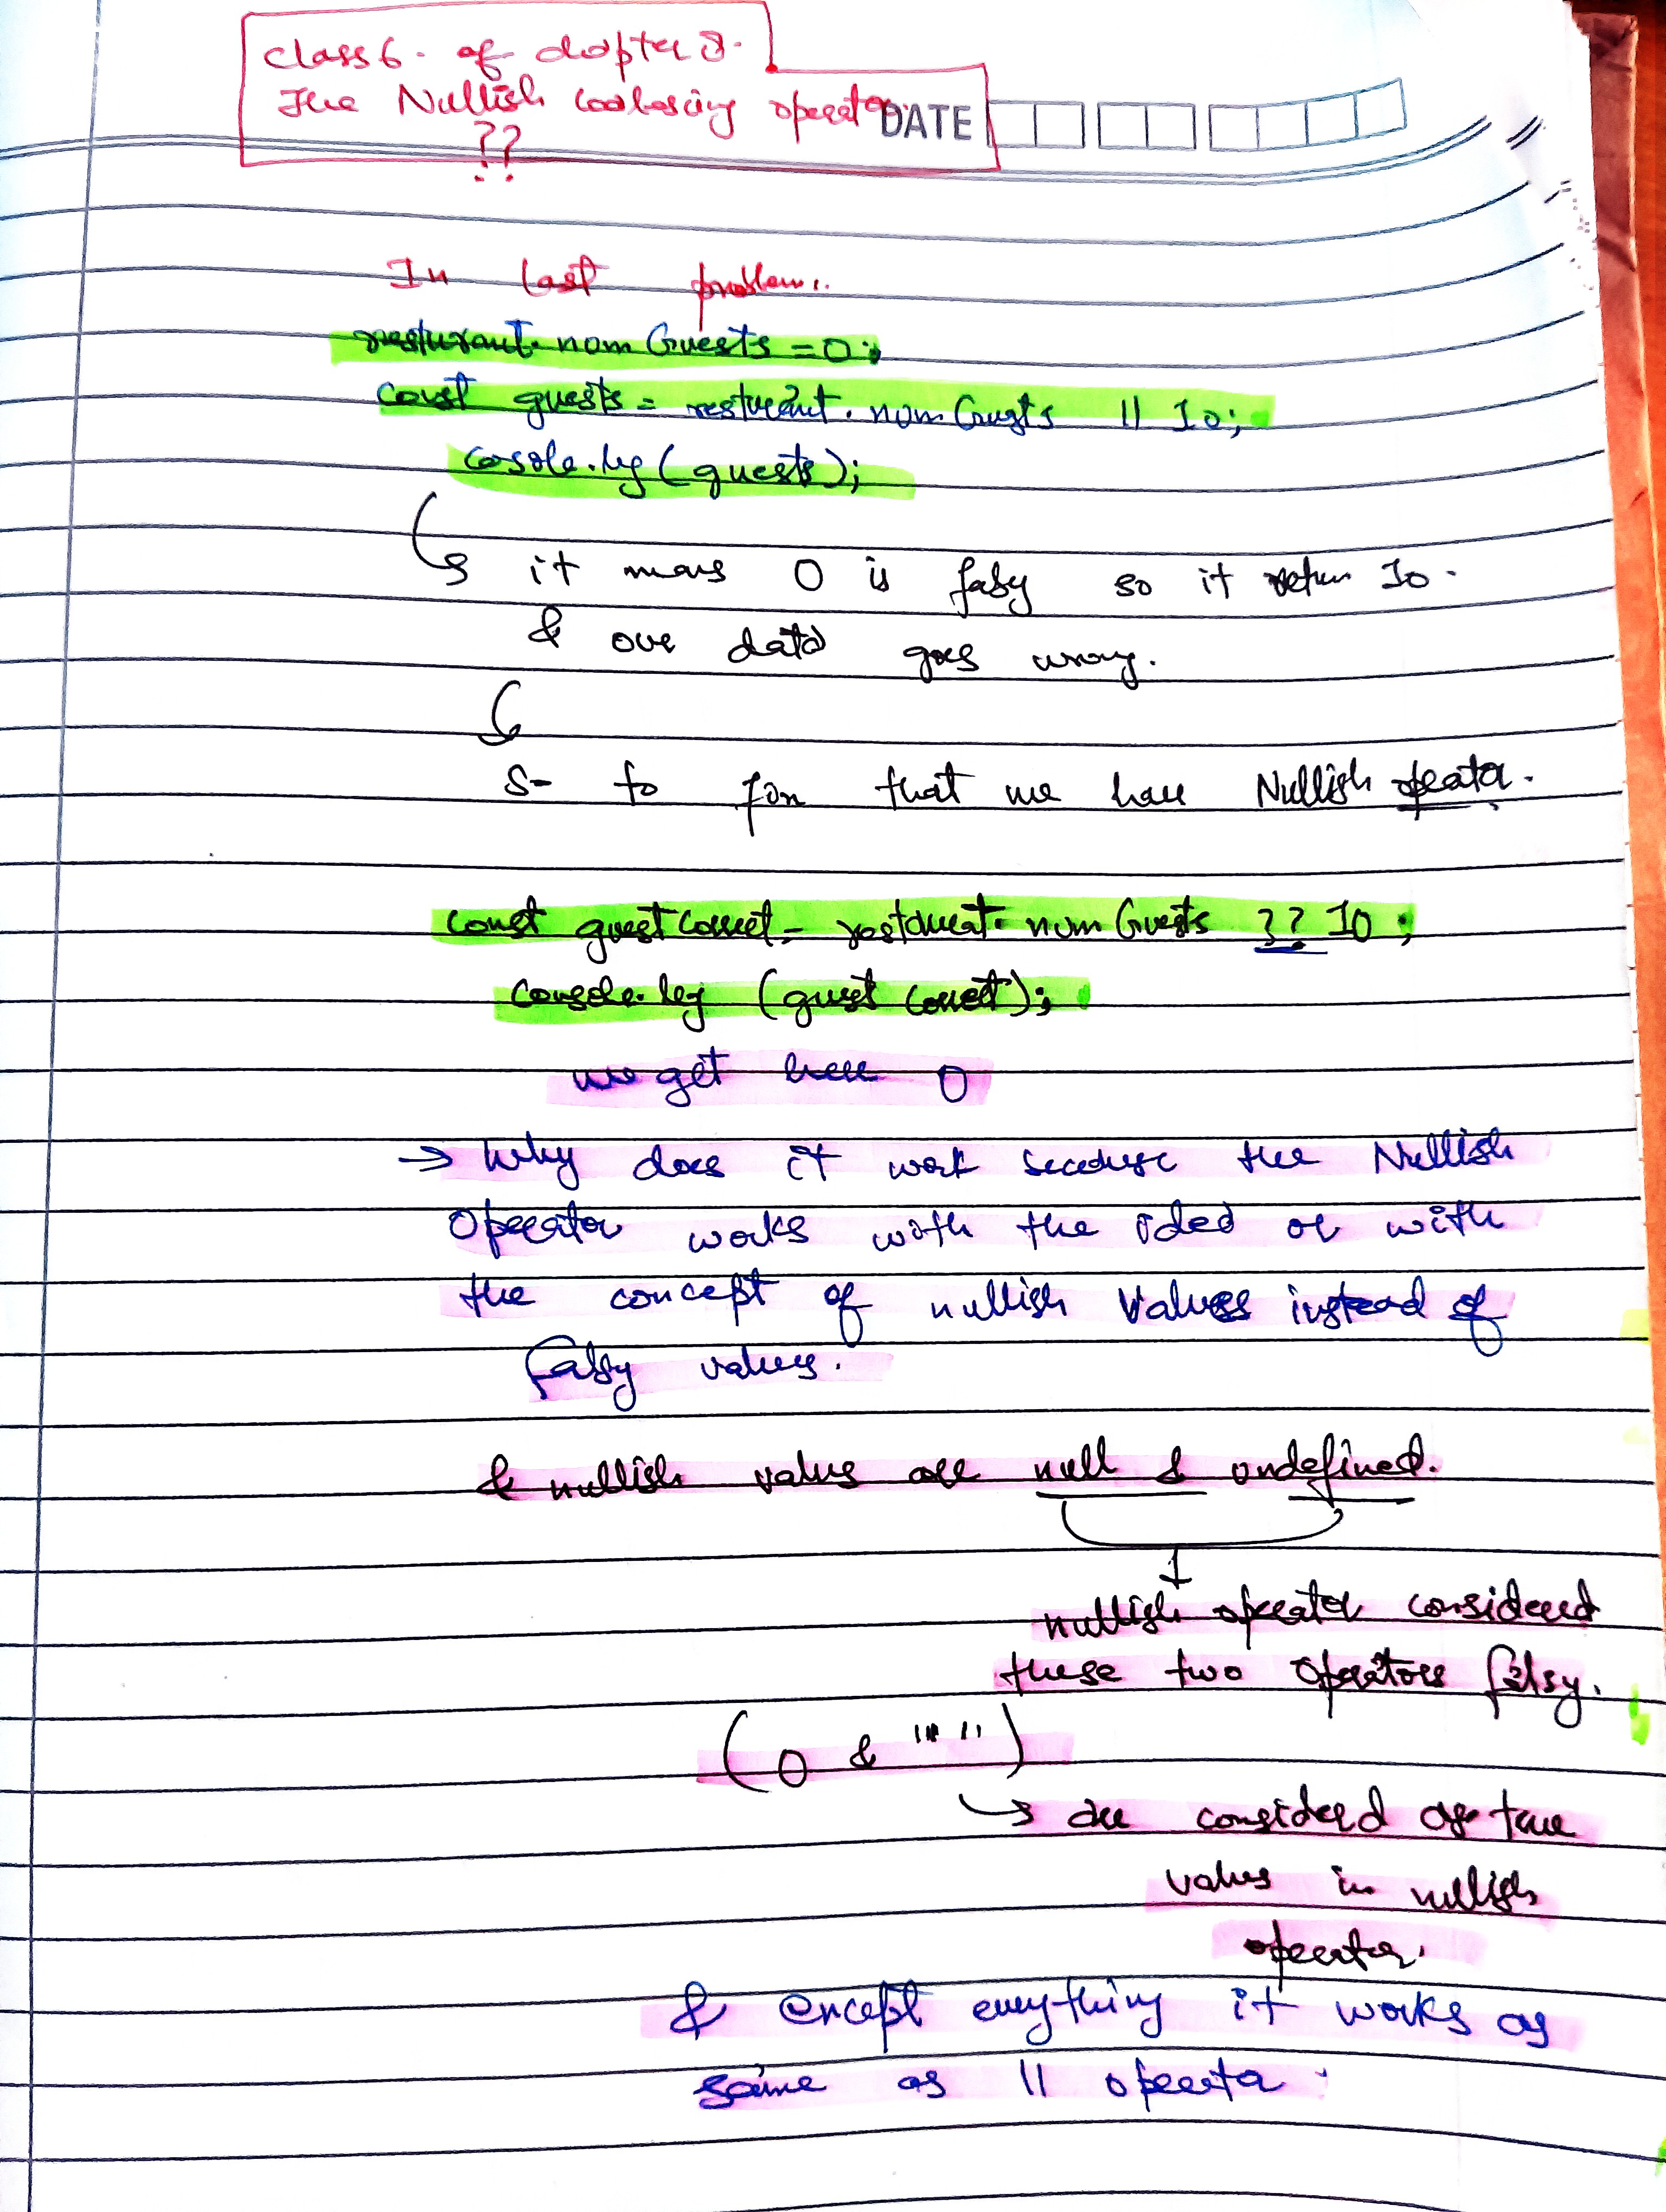 class 6. of chapter 9.
The Nullish Coalescing operator.
??
DATE
In last problem..
resturant.numGuests = 0;
const guests = resturant.numGuests || 10;
cosole.log(guests);
it means 0 is falsy so it return 10.
& our data goes wrong.
So to for that we have Nullish operator.
const guestCorrect = restaurant.numGuests ?? 10;
console.log (guest Correct);
we get here 0
→ Why does it work because the Nullish
Operator works with the idea or with
the concept of nullish values instead of
falsy values.
& nullish values are null & undefined.
nullish operator considered
these two operators falsy.
(0 & "" )
are considerd as true
values in nullish
operator.
& except everything it works as
same as || operator.